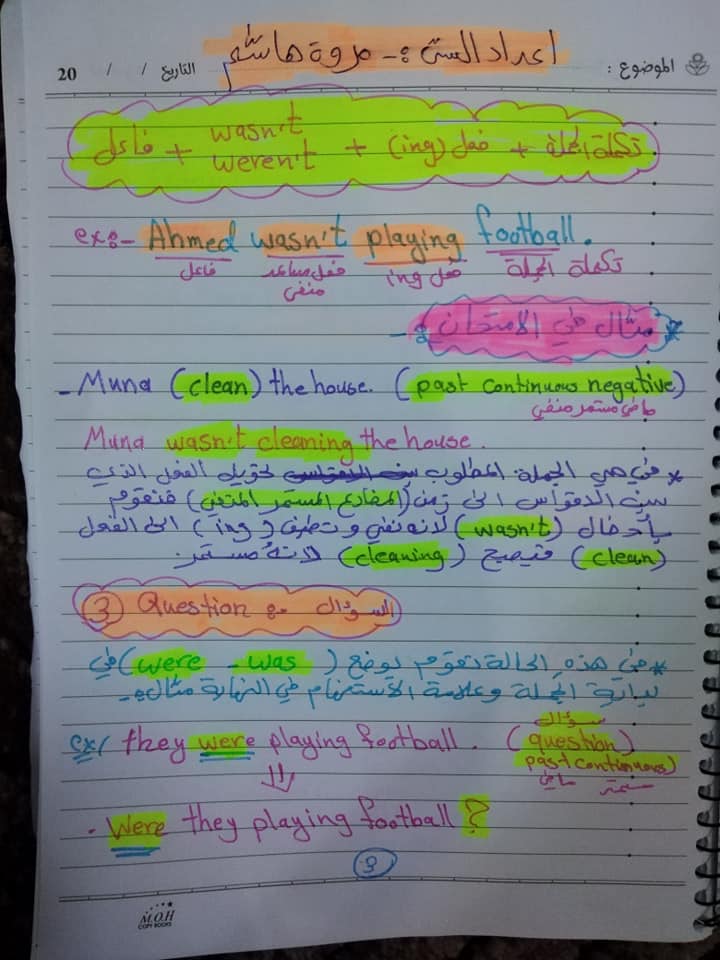 اعداد الست :- مروة هاشم
الموضوع :
التاريخ / / 20
فاعل + wasn't weren't + فعل (ing) + تكملة الجملة
ex:- Ahmed wasn't playing football.
فاعل فعل مساعد منفي فعل ing تكملة الجملة
* مثال في الامتحان *-
- Muna (clean) the house. (past continuous negative)
ماضي مستمر منفي
Muna wasn't cleaning the house.
* في هي الجملة المطلوب تحويل الفعل الذي
بين الاقواس الى زمن (المضارع المستمر المنفي) فنقوم
بأدخال (wasn't) لانه نفي و نضيف (ing) الى الفعل
(clean) فيصبح (cleaning) لانهُ مستمر.
③ Question :- السؤال
* في هذه الحالة نقوم بوضع (were - was) في
بداية الجملة وعلامة الأستفهام في النهاية مثال:-
ex/ they were playing football. (question)
سؤال
past continuous)
ماضي مستمر
⇓
. Were they playing football ?
3
M.O.H
COPY BOOKS